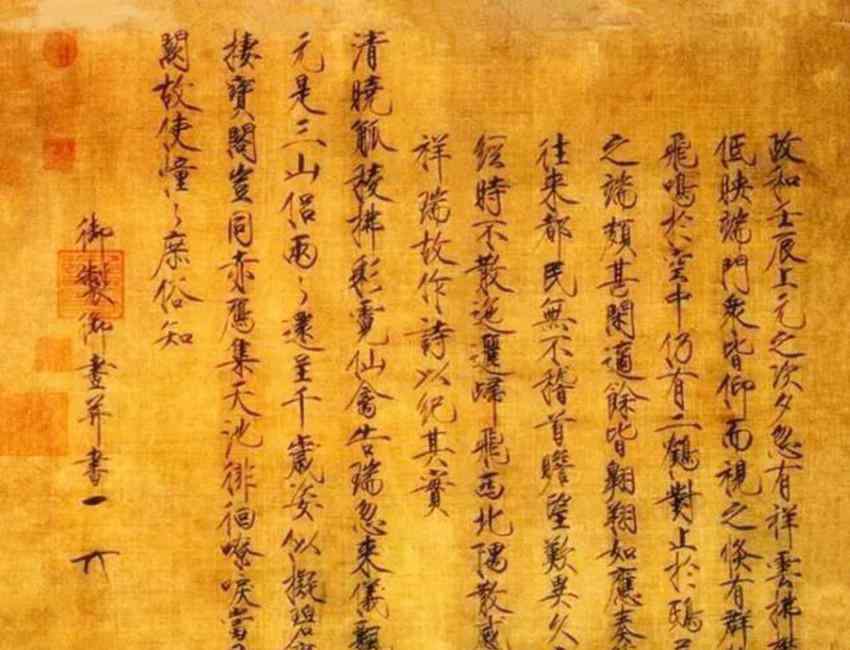 政和壬辰上元之次夕忽有祥雲拂鬱
低映端門衆皆仰而視之倏有群
飛鳴於空中仍有二鶴對止於鴟
之端頗甚閑適餘皆翱翔如應奏
往來都民無不稽首瞻望歎異久
經時不散迤邐歸飛西北隅散感
祥瑞故作詩以紀其實
清曉觚稜拂彩霓仙禽告瑞忽來儀飄
元是三山侶兩〻還呈千歲姿似擬碧
棲寶閣豈同赤鴈集天池徘徊嘹唳當
闕故使憧〻庶俗知
御製御畫并書